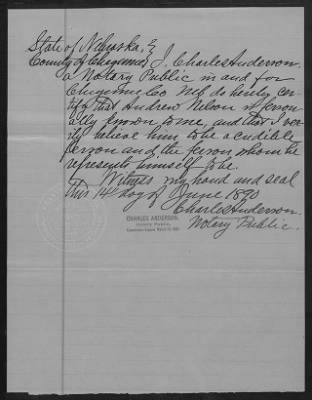 State of Nebraska, }
County of Cheyenne } I, Charles Anderson
a Notary Public in and for
Cheyenne Co Neb do hereby cer-
tify that Andrew Nelson is person-
ally known to me, and that I ver-
ily believe him to be a credible
person and the person whom he
represents himself to be.
Witness my hand and seal
this 14 day of June 189
Charles Anderson
Notary Public.
CHARLES ANDERSON,
Notary Public,